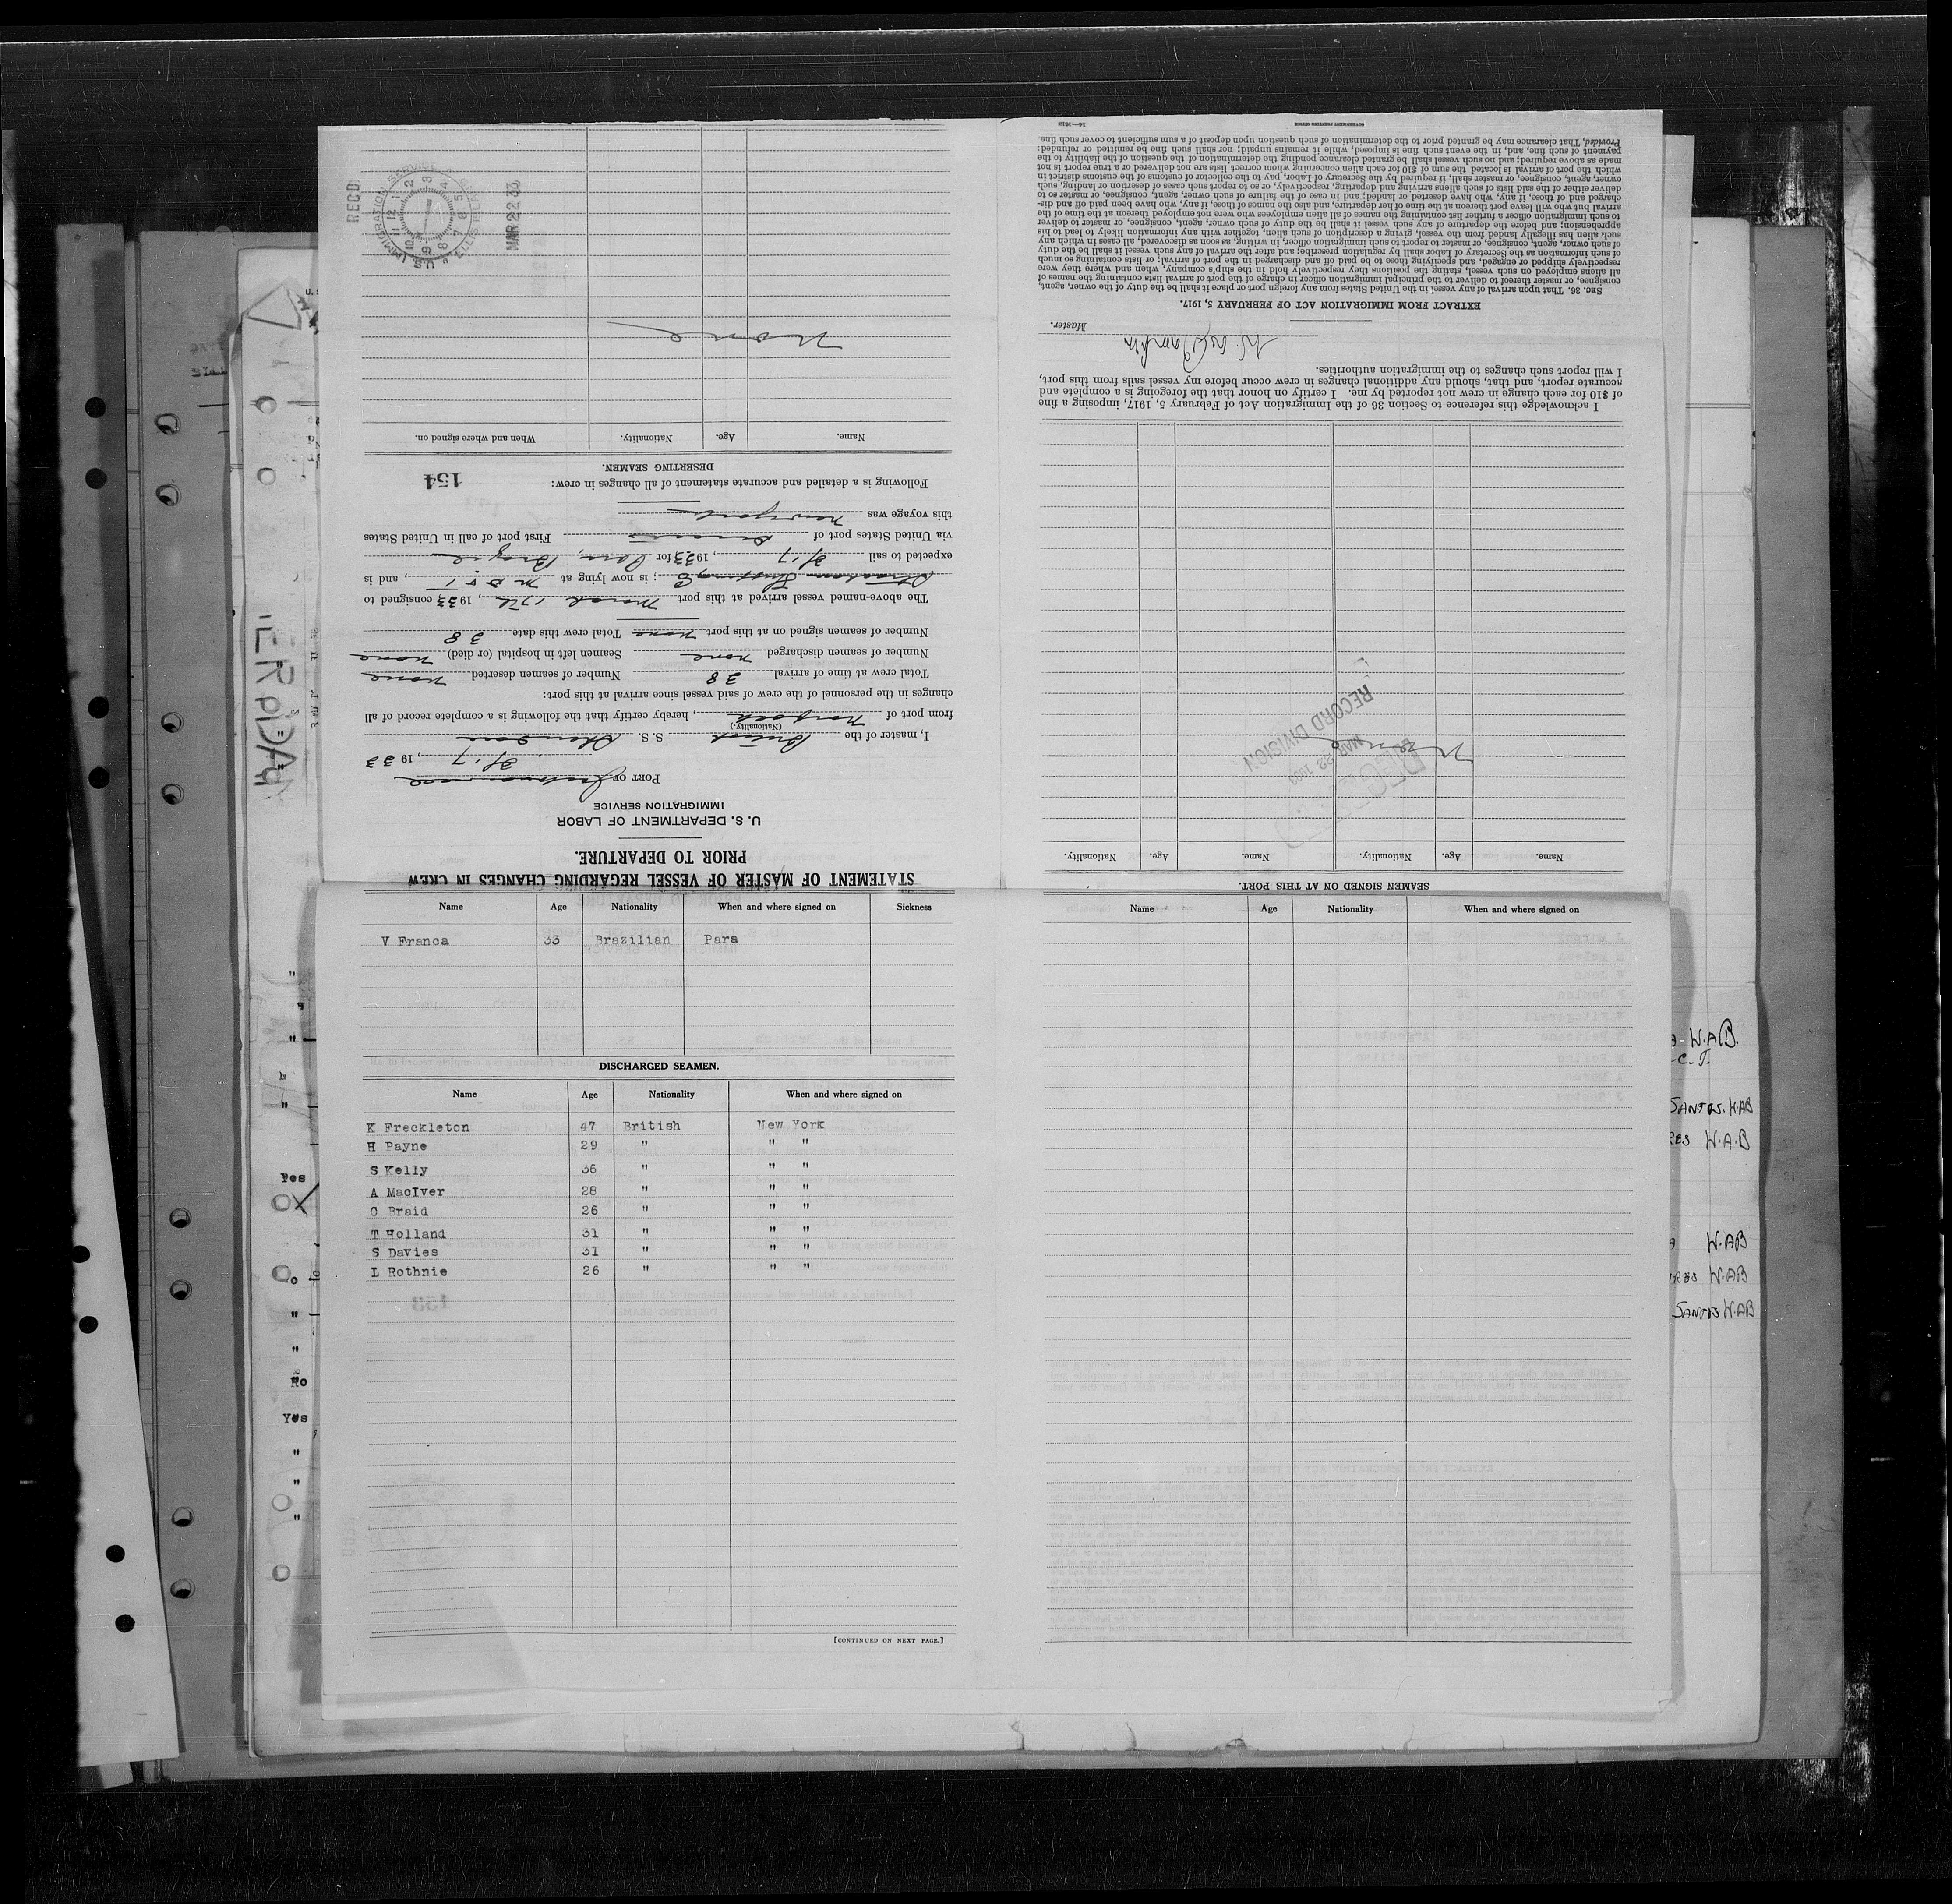 STATEMENT OF MASTER OF VESSEL REGARDING CHANGES IN CREW
PRIOR TO DEPARTURE.
U. S. DEPARTMENT OF LABOR
IMMIGRATION SERVICE
PORT OF
3/17, 1933
I, master of the British S. S.
(Nationality.)
from port of Norfolk, hereby certify that the following is a complete record of all
changes in the personnel of the crew of said vessel since arrival at this port:
Total crew at time of arrival 38 Number of seamen deserted none
Number of seamen discharged none Seamen left in hospital (or died) none
Number of seamen signed on at this port none Total crew this date 38
The above-named vessel arrived at this port March 17th, 1933, consigned to
; is now lying at, and is
expected to sail 3/17, 1933 for
via United States port of First port of call in United States
this voyage was
Following is a detailed and accurate statement of all changes in crew:
154
DESERTING SEAMEN.
Name. Age. Nationality. When and where signed on.
None
RECD
U.S. IMMIGRATION SERVICE
MAR 22 33
SEAMEN SIGNED ON AT THIS PORT.
Name. Age. Nationality. Name. Age. Nationality.
None
MAR 22 1933
RECORD DIVISION
I acknowledge this reference to Section 36 of the Immigration Act of February 5, 1917, imposing a fine
of $10 for each change in crew not reported by me. I certify on honor that the foregoing is a complete and
accurate report, and that, should any additional changes in crew occur before my vessel sails from this port,
I will report such changes to the immigration authorities.
Master.
EXTRACT FROM IMMIGRATION ACT OF FEBRUARY 5, 1917.
SEC. 36. That upon arrival of any vessel in the United States from any foreign port or place it shall be the duty of the owner, agent,
consignee, or master thereof to deliver to the principal immigration officer in charge of the port of arrival lists containing the names of
all aliens employed on such vessel, stating the positions they respectively hold in the ship's company, when and where they were
respectively shipped or engaged, and specifying those to be paid off and discharged in the port of arrival; or lists containing so much
of such information as the Secretary of Labor shall by regulation prescribe; and after the arrival of any such vessel it shall be the duty
of such owner, agent, consignee, or master to report to such immigration officer, in writing, as soon as discovered, all cases in which any
such alien has illegally landed from the vessel, giving a description of such alien, together with any information likely to lead to his
apprehension; and before the departure of any such vessel it shall be the duty of such owner, agent, consignee, or master to deliver
to such immigration officer a further list containing the names of all alien employees who were not employed thereon at the time of the
arrival but who will leave port thereon at the time of her departure, and also the names of those, if any, who have been paid off and dis-
charged and of those, if any, who have deserted or landed; and in case of the failure of such owner, agent, consignee, or master so to
deliver either of the said lists of such aliens arriving and departing, respectively, or so to report such cases of desertion or landing, such
owner, agent, consignee, or master shall, if required by the Secretary of Labor, pay to the collector of customs of the customs district in
which the port of arrival is located the sum of $10 for each alien concerning whom correct lists are not delivered or a true report is not
made as above required; and no such vessel shall be granted clearance pending the determination of the question of the liability to the
payment of such fine, and, in the event such fine is imposed, while it remains unpaid; nor shall such fine be remitted or refunded:
Provided, That clearance may be granted prior to the determination of such question upon deposit of a sum sufficient to cover such fine.
GOVERNMENT PRINTING OFFICE
Name Age Nationality When and where signed on Sickness
V Franca 33 Brazilian Para
DISCHARGED SEAMEN.
Name Age Nationality When and where signed on
K Freckleton 47 British New York
H Payne 29 " " "
S Kelly 36 " " "
A MacIver 28 " " "
C Braid 26 " " "
T Holland 31 " " "
S Davies 31 " " "
L Rothnie 26 " " "
[CONTINUED ON NEXT PAGE.]
Name Age Nationality When and where signed on
Yes
No
Yes
W.A.B.
C.T.
SANTOS. W.AB
RES W.A.B
W.AB
RES W.AB
SANTOS W.AB